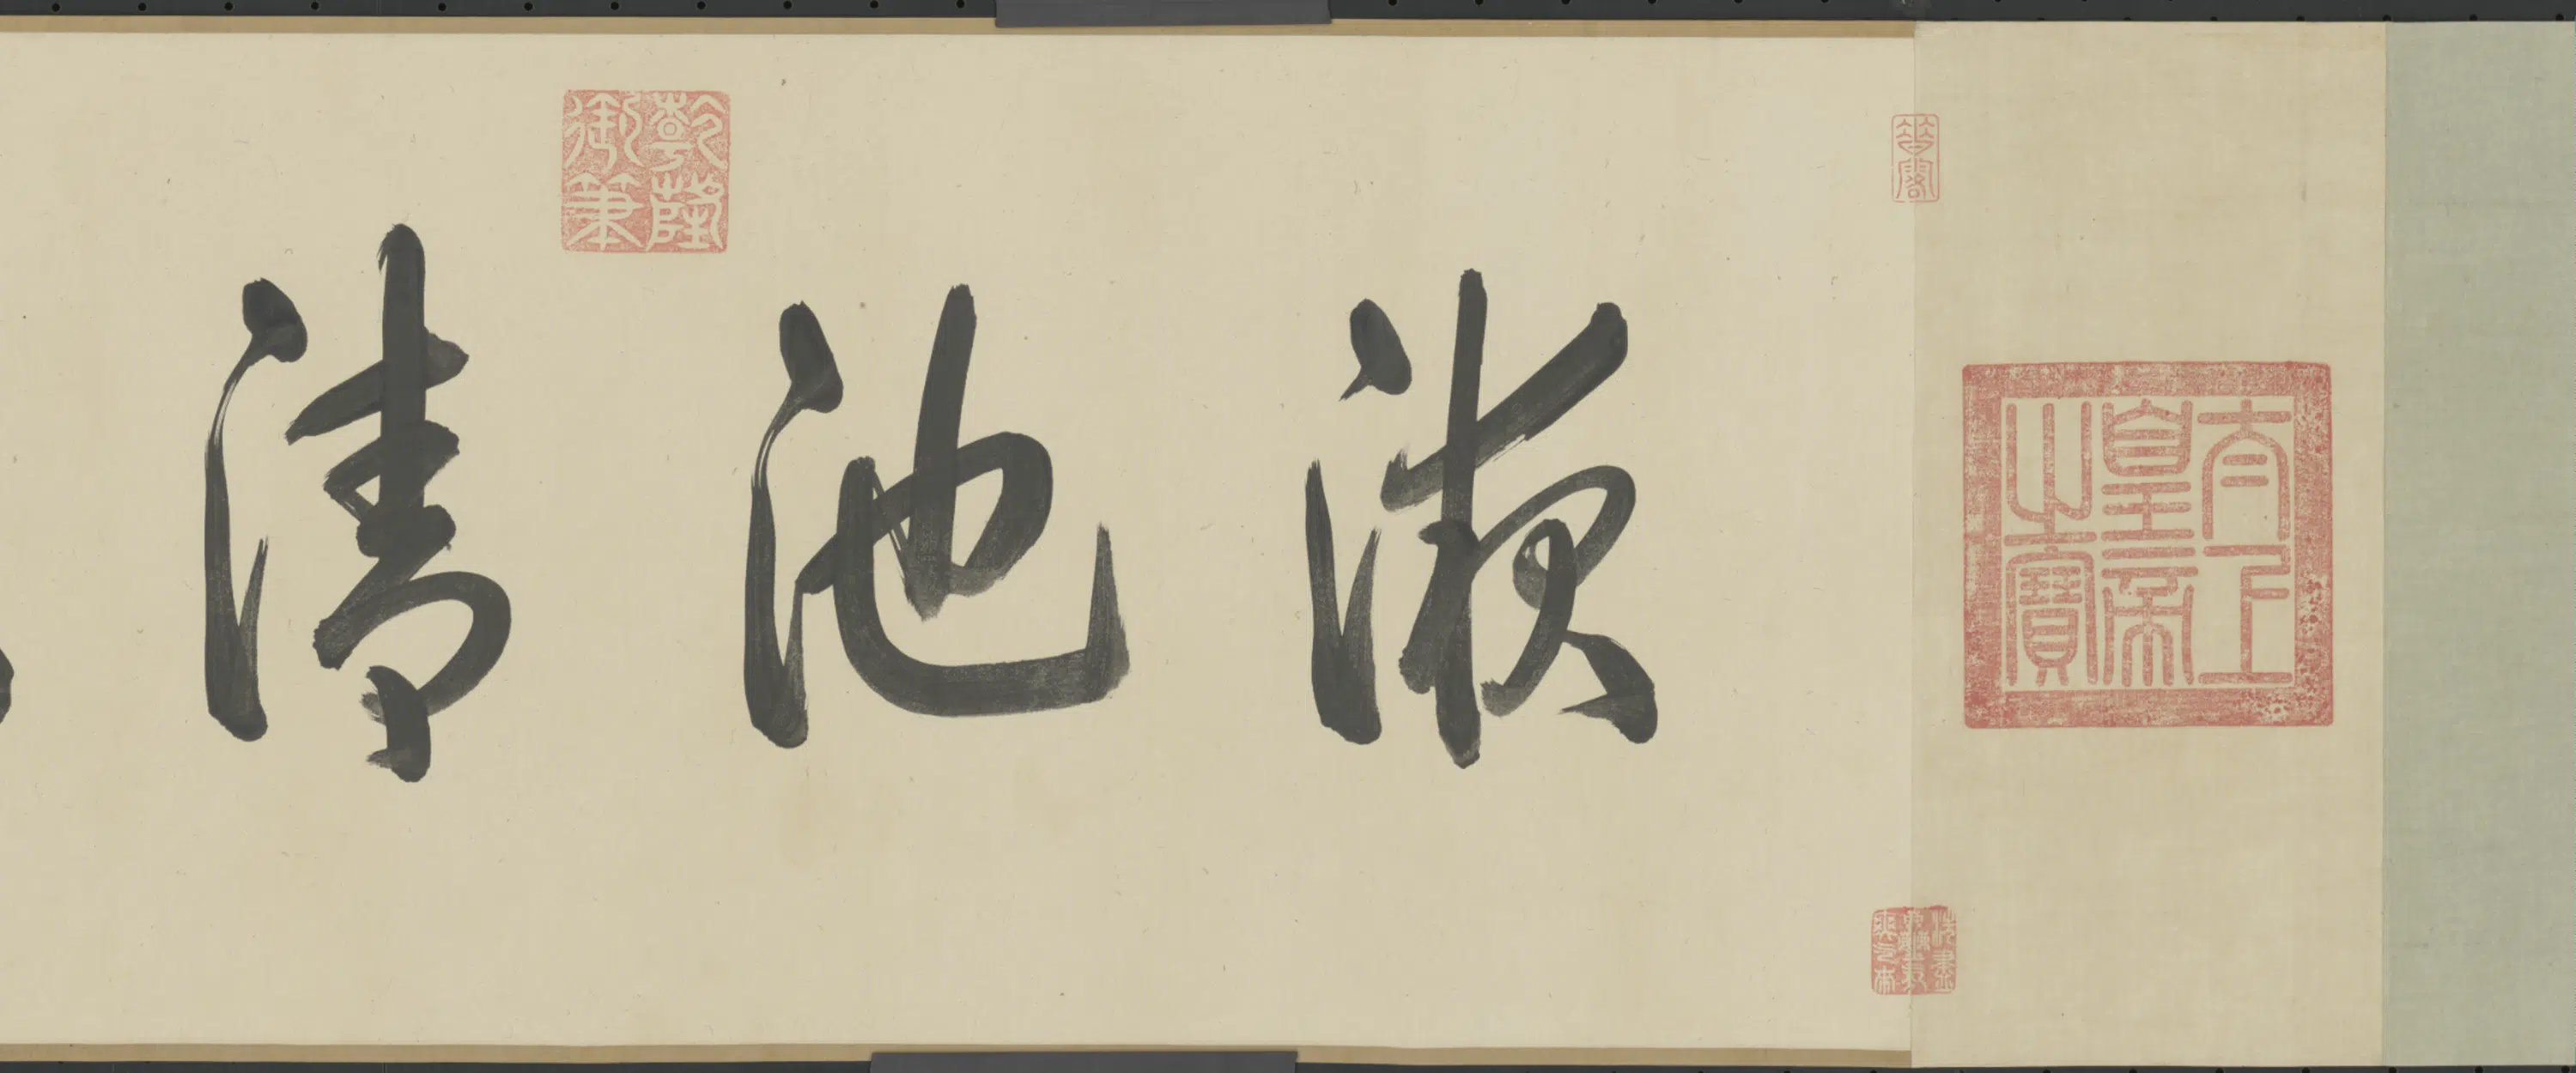 太上皇帝之寶
液池清
乾隆御筆